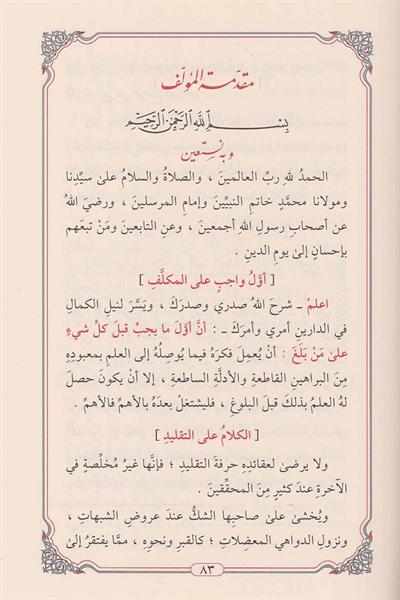 مقدّمة المؤلّف
بِسْمِ اللهِ الرَّحْمٰنِ الرَّحِيْمِ
وبه نستعين
الحمدُ للهِ ربِّ العالمينَ ، والصلاةُ والسلامُ علىٰ سيِّدِنا
ومولانا محمَّدٍ خاتمِ النبيِّينَ وإمامِ المرسلينَ ، ورضيَ اللهُ
عن أصحابِ رسولِ اللهِ أجمعينَ ، وعنِ التابعينَ ومَنْ تبعَهم
بإحسانٍ إلىٰ يومِ الدينِ .
[ أوَّلُ واجبٍ على المكلَّفِ ]
اعلمْ ــ شرحَ اللهُ صدري وصدرَكَ ، ويَسَّرَ لنيلِ الكمالِ
في الدارينِ أمري وأمرَكَ ــ : أنَّ أوَّلَ ما يجبُ قبلَ كلِّ شيءٍ
علىٰ مَنْ بَلَغَ : أنْ يُعمِلَ فكرَهُ فيما يُوصِلُهُ إلى العلمِ بمعبودِهِ
مِنَ البراهينِ القاطعةِ والأدلَّةِ الساطعةِ ، إلا أنْ يكونَ حصلَ
لهُ العلمُ بذلكَ قبلَ البلوغِ ، فليشتغلْ بعدَهُ بالأهمِّ فالأهمِّ .
[ الكلامُ على التقليدِ ]
ولا يرضىٰ لعقائدِهِ حرفةَ التقليدِ ؛ فإنَّها غيرُ مُخلِّصةٍ في
الآخرةِ عندَ كثيرٍ مِنَ المحقِّقينَ .
ويُخشىٰ علىٰ صاحبِها الشكُّ عندَ عروضِ الشبهاتِ ،
ونزولِ الدواهي المعضِلاتِ ؛ كالقبرِ ونحوِهِ ، ممَّا يفتقرُ إلىٰ
٨٣